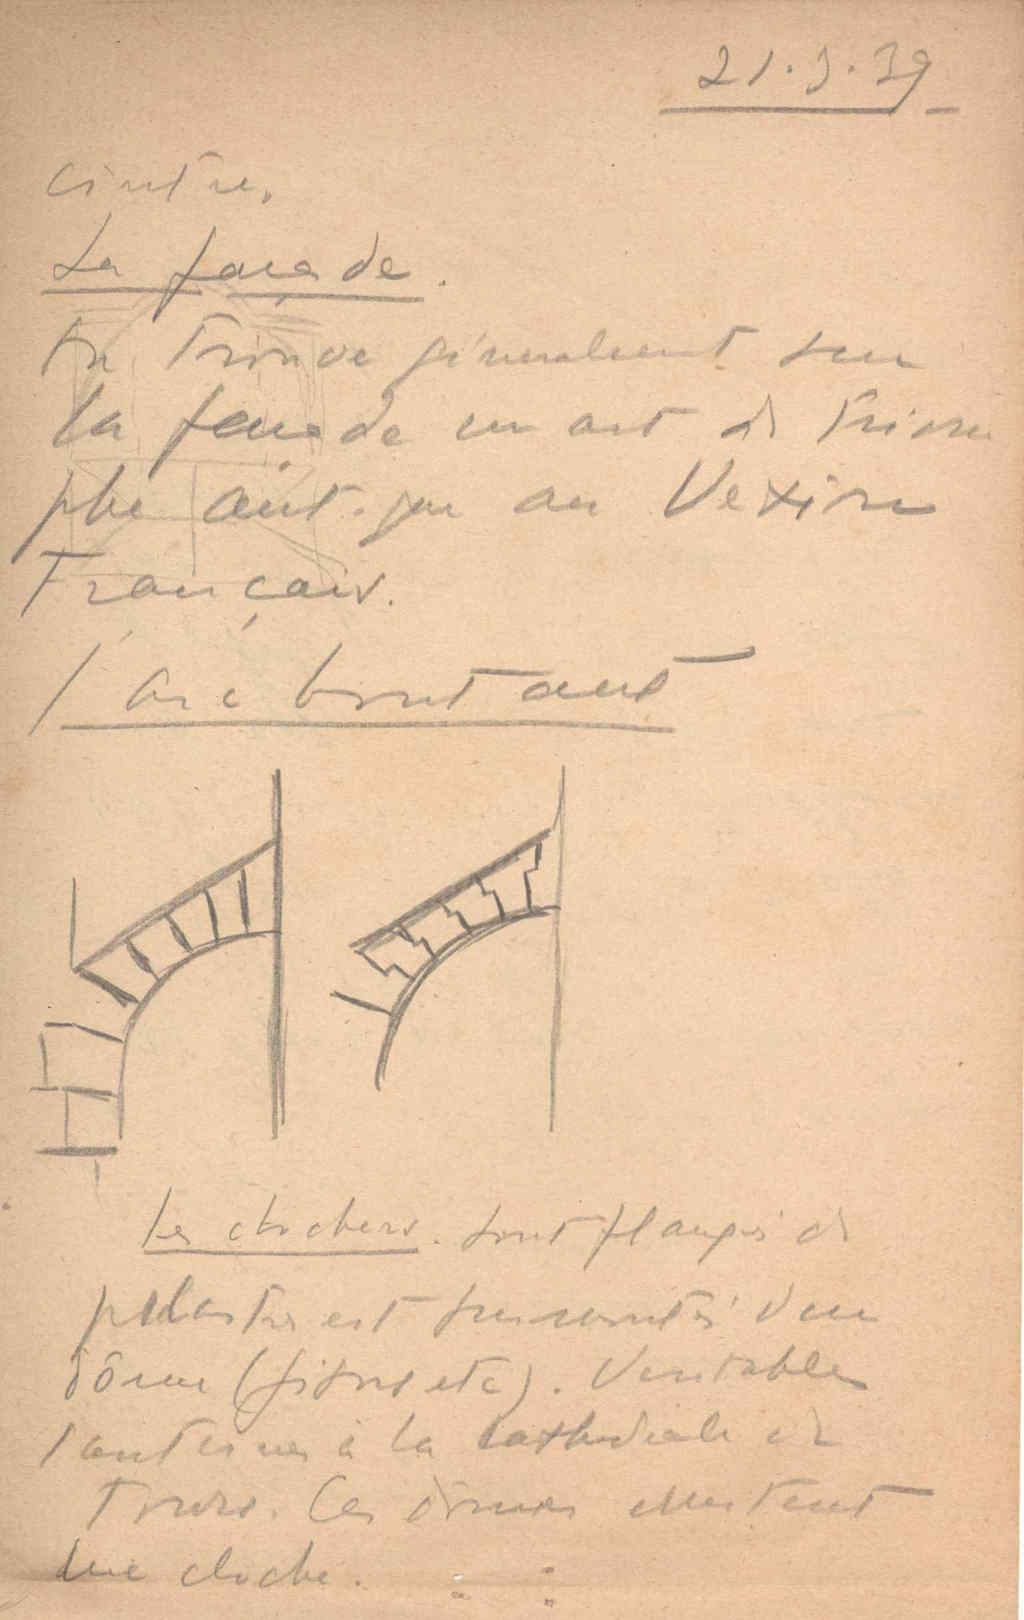 21.3.39
cintre.
La façade.
On trouve généralement sur
la façade un arc de triom
phe ant. que au Vexin
Français.
l'arc boutant
Les clochers. sont flanqués de
pilastres et surmontés d'un
dôme (Gisors etc). Veritables
lanternes à la cathédrale de
Tours. Ces dômes
une cloche.